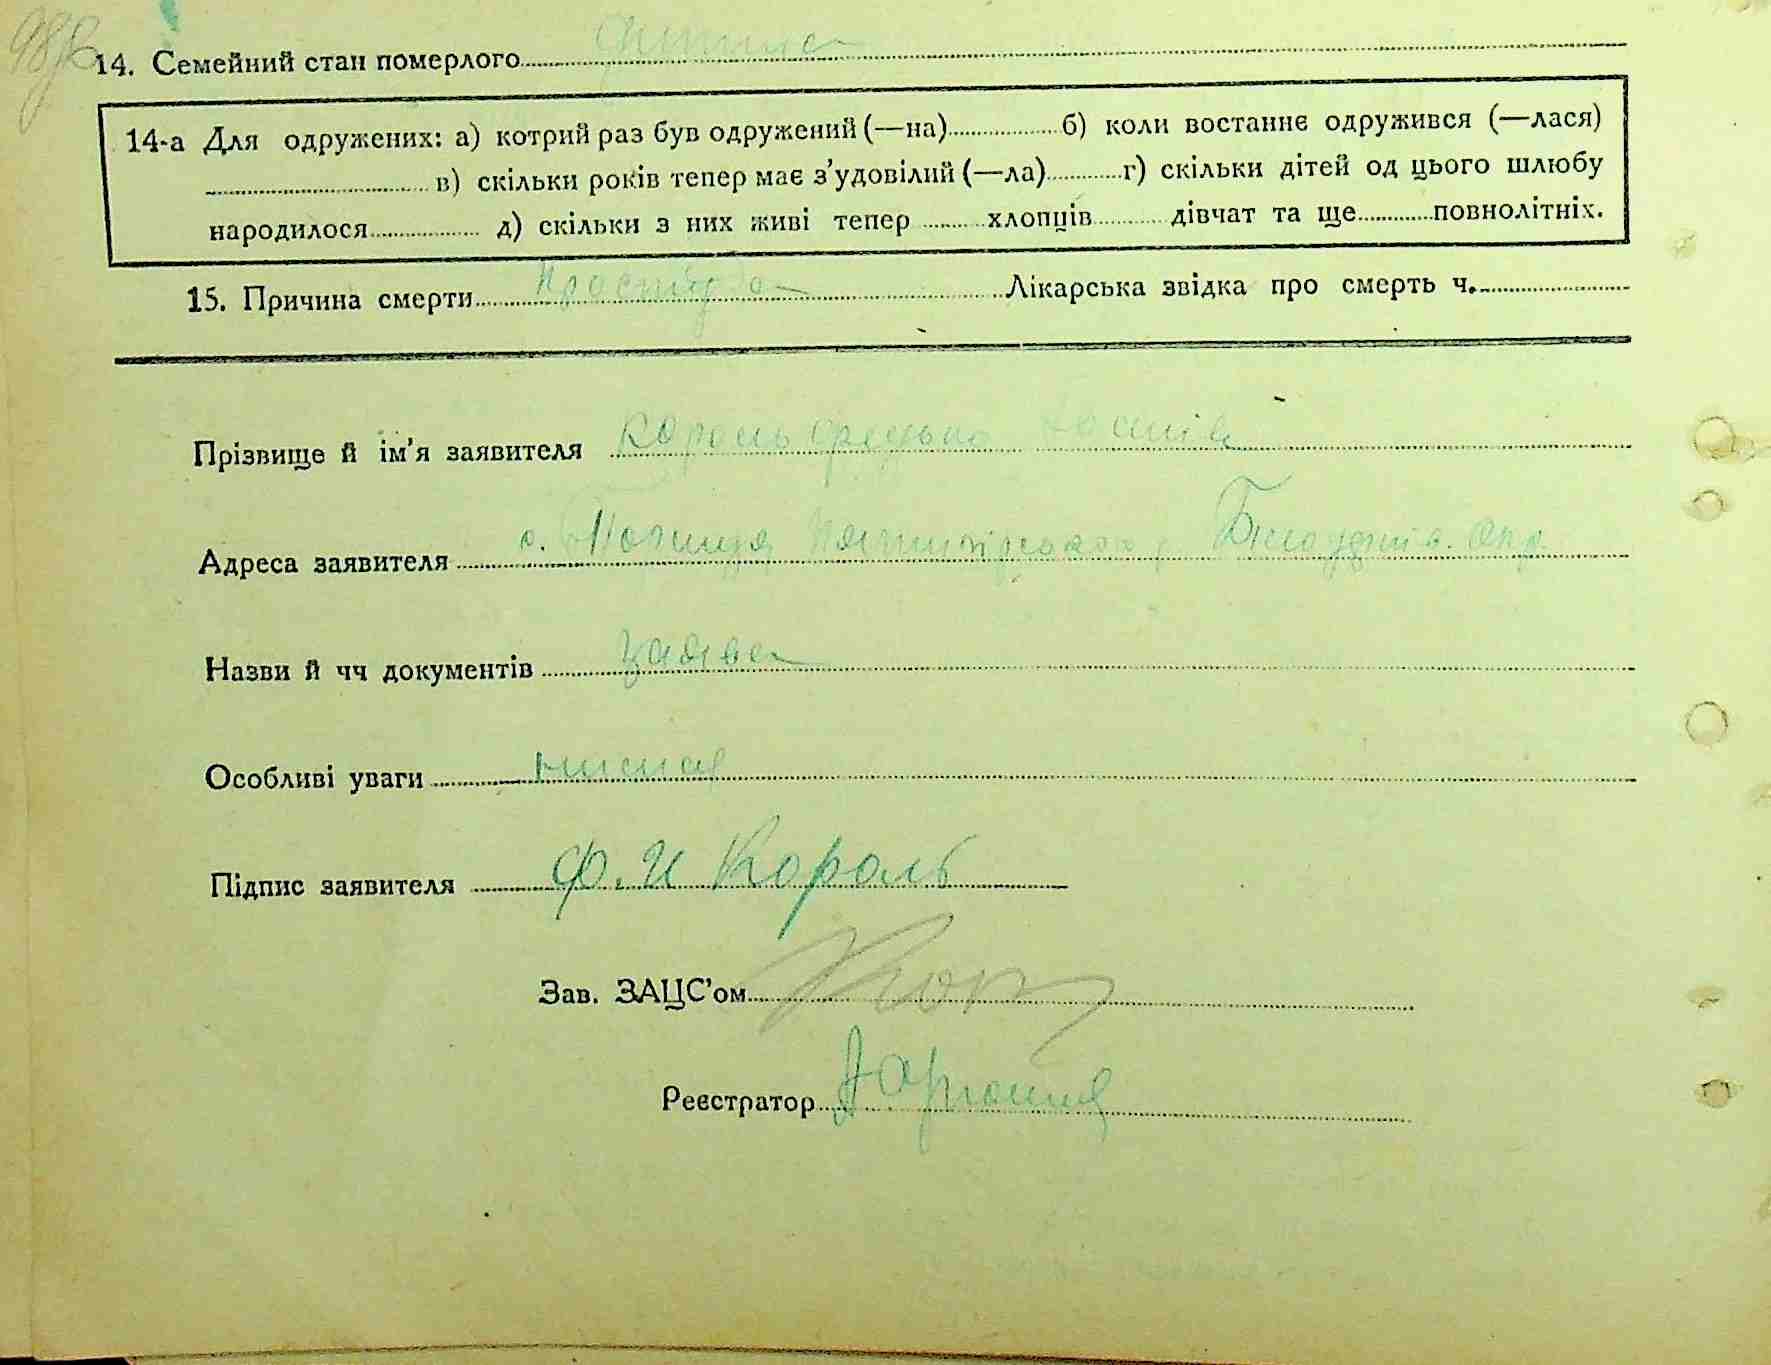 14. Семейний стан померлого
14-а Для одружених: а) котрий раз був одружений (—на) б) коли востаннє одружився (—лася)
в) скільки років тепер має з’удовілий (—ла) г) скільки дітей од цього шлюбу
народилося д) скільки з них живі тепер хлопців дівчат та ще повнолітніх.
15. Причина смерти простуда Лікарська звідка про смерть ч.
Прізвище й ім’я заявителя Король
Адреса заявителя с.
Назви й чч документів заява
Особливі уваги немає
Підпис заявителя Ф. И Король
Зав. ЗАЦС’ом
Реєстратор